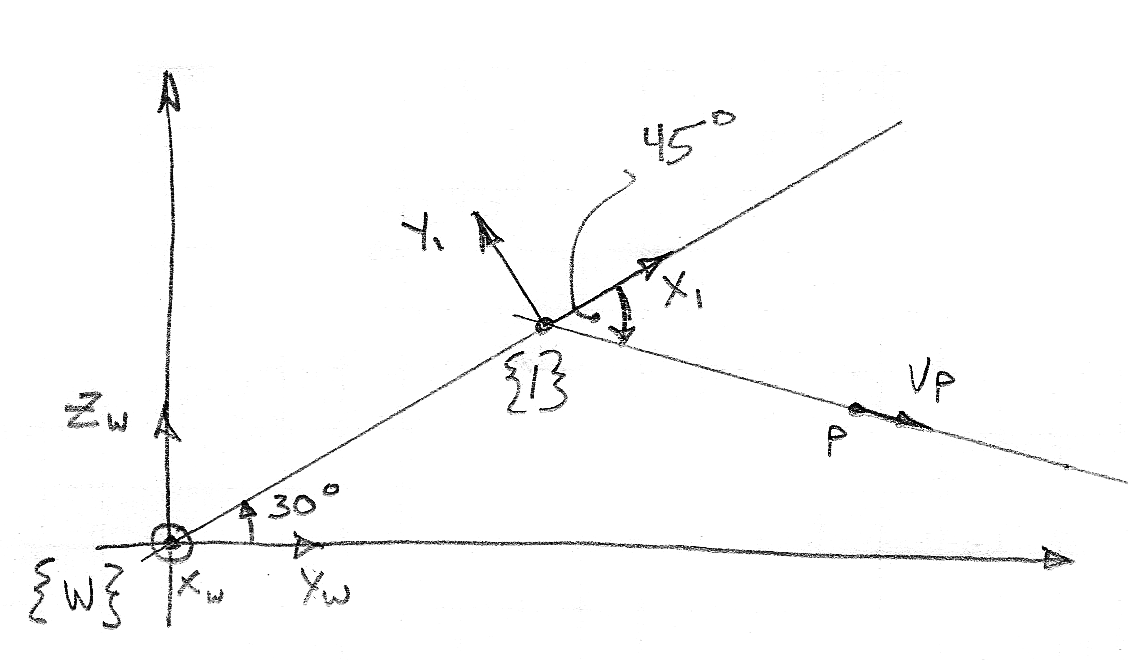 45°
Y₁
X₁
{1}
V_P
P
Z_W
30°
{W}
X_W
Y_W